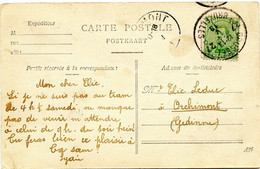 Expéditeur
CARTE POSTALE
POSTKAART
Partie réservée à la correspondance
Adresse du destinataire
Mon cher Elie,
Si je ne suis pas au tram
de 4 h ½ samedi, ou manque
pas de venir m'attendre
à celui de 9 h. du soir hein
Tu feras bien ce plaisir à
Mr Elie Leduc
à
Orchimont
(Gedinne)